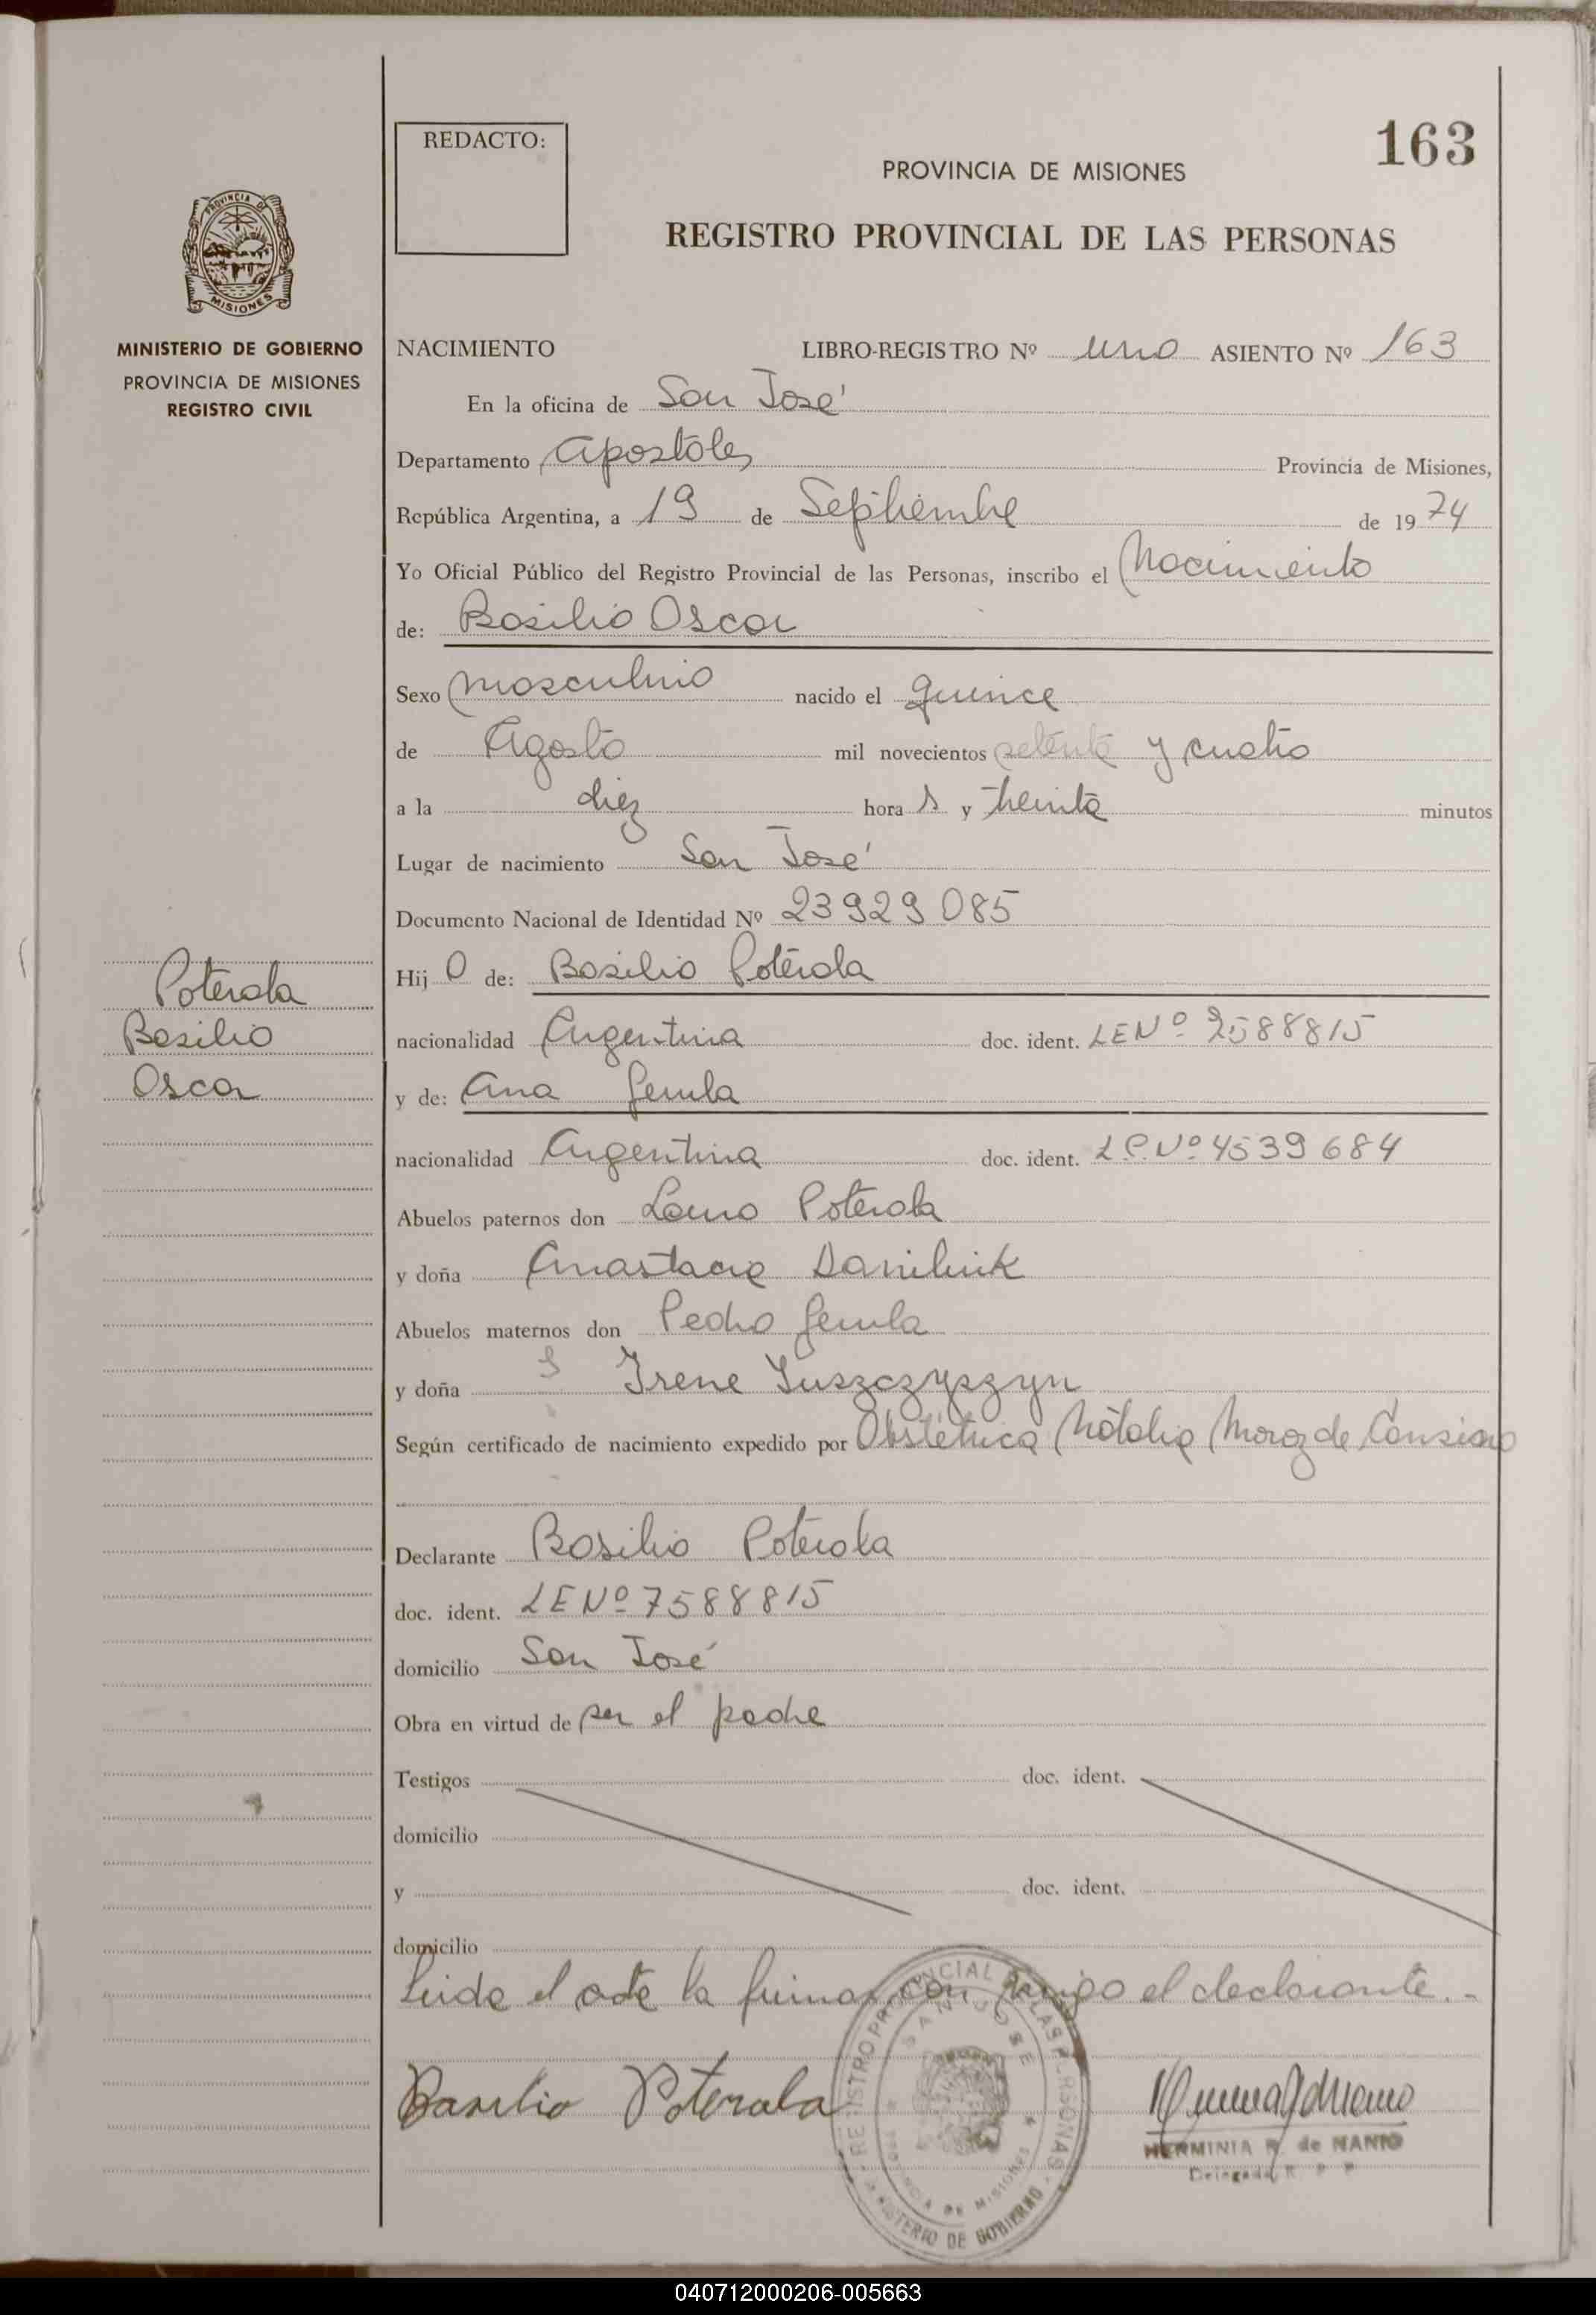 163
REDACTO:
PROVINCIA DE MISIONES
REGISTRO PROVINCIAL DE LAS PERSONAS
PROVINCIA DE
MISIONES
MINISTERIO DE GOBIERNO
PROVINCIA DE MISIONES
REGISTRO CIVIL
NACIMIENTO LIBRO-REGISTRO Nº uno ASIENTO Nº 163
En la oficina de San José
Departamento Apostoles Provincia de Misiones,
República Argentina, a 19 de Septiembre de 1974
Yo Oficial Público del Registro Provincial de las Personas, inscribo el Nacimiento
de: Basilio Oscar
Sexo masculino nacido el quince
de Agosto mil novecientos setenta y cuatro
a la diez hora s y treinta minutos
Lugar de nacimiento San José
Documento Nacional de Identidad Nº 23929085
Hij o de: Basilio Poterala
nacionalidad Argentina doc. ident. LE Nº 7588815
y de: Ana Gerula
nacionalidad Argentina doc. ident. LC Nº 4539684
Abuelos paternos don Lauro Poterala
y doña Anastacia Daniluik
Abuelos maternos don Pedro Gerula
y doña Irene Juszczyszyn
Según certificado de nacimiento expedido por Obstétrica Natalia Moroz de
Declarante Basilio Poterala
doc. ident. LE Nº 7588815
domicilio San José
Obra en virtud de ser el padre
Testigos doc. ident.
domicilio
y doc. ident.
domicilio
Leida el acta la firma con migo el declarante.-
Basilio Poterala
HERMINIA R. de NANIO
Delegada R. P. P.
REGISTRO PROVINCIAL DE LAS PERSONAS
SAN JOSE
PROVINCIA DE MISIONES
MINISTERIO DE GOBIERNO
Poterala
Basilio
Oscar
040712000206-005663